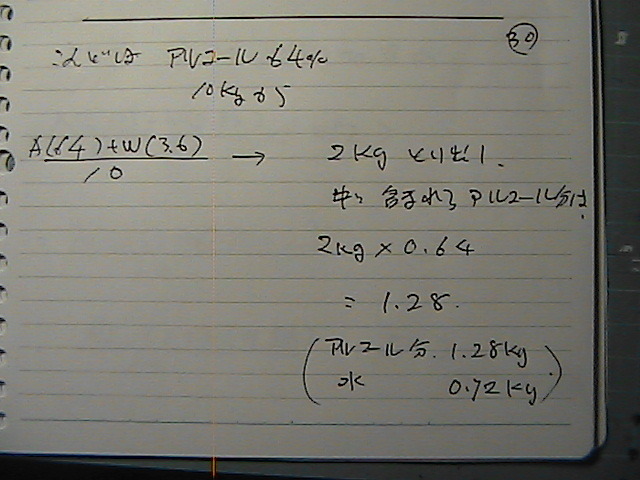 30
こんどは アルコール64%
10kgから
A(6.4)+W(3.6)
10
→
2kg とり出し
中に含まれるアルコール分は
2kg×0.64
=1.28.
アルコール分. 1.28kg
水 0.72kg.